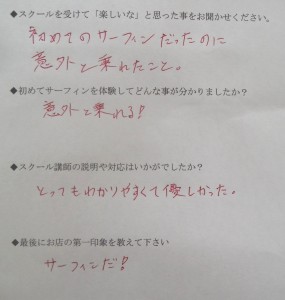 ◆スクールを受けて「楽しいな」と思った事をお聞かせください。
初めてのサーフィンだったのに
意外と乗れたこと。
◆初めてサーフィンを体験してどんな事が分かりましたか？
意外と乗れる！
◆スクール講師の説明や対応はいかがでしたか？
とってもわかりやすくて優しかった。
◆最後にお店の第一印象を教えて下さい
サーフィンだ！